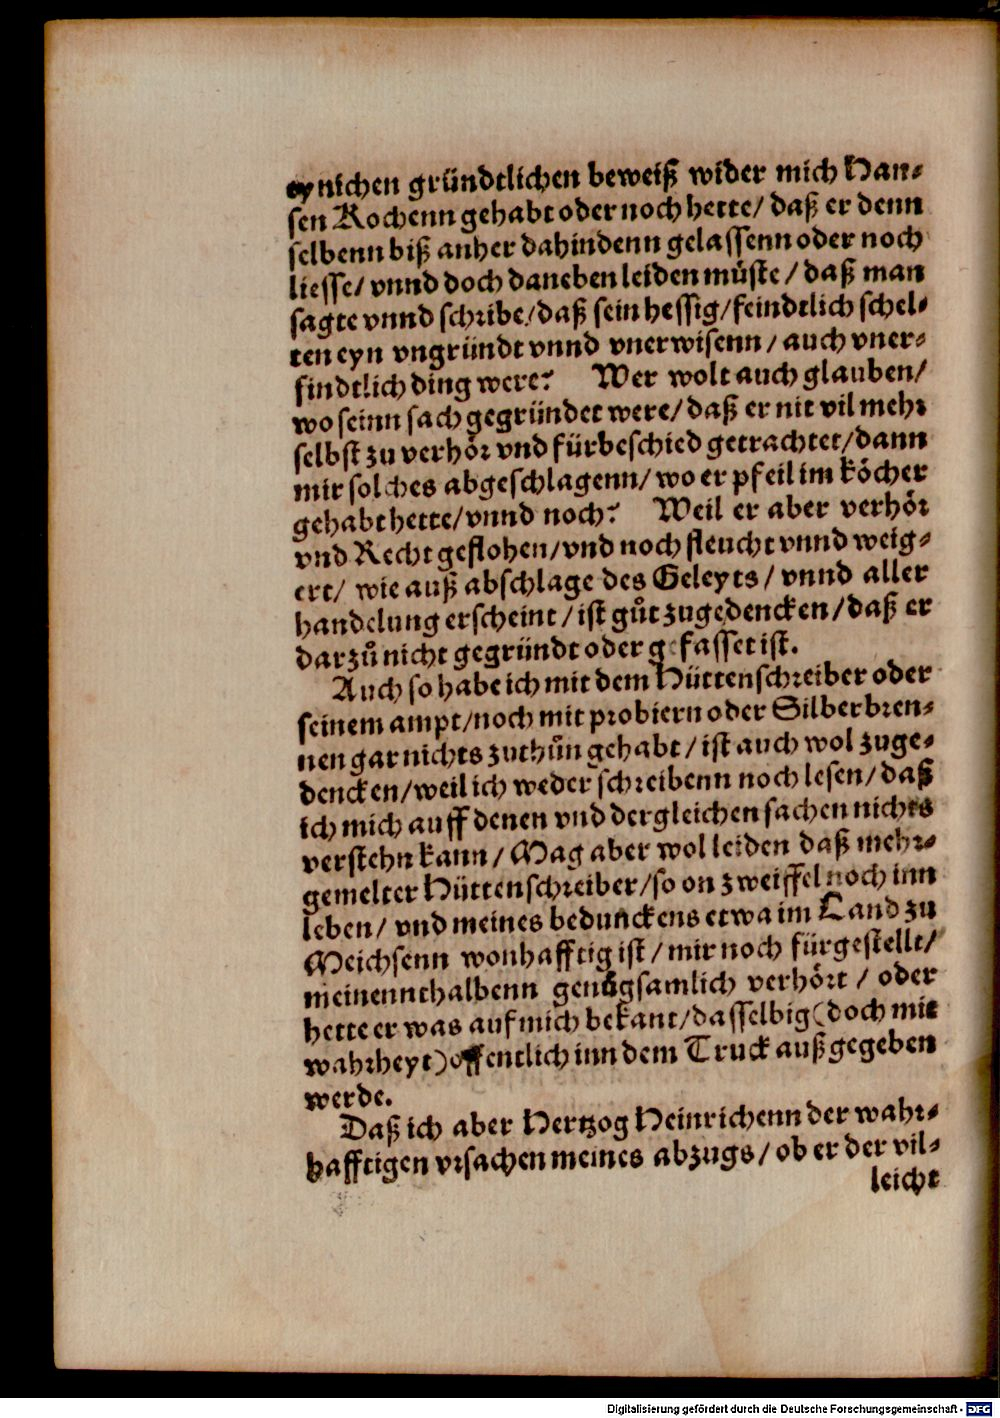 eynichen gründtlichen beweiß wider mich Han⸗
sen Kochenn gehabt oder noch hette/ daß er denn
selbenn biß anher dahindenn gelassenn oder noch
liesse/ vnnd doch daneben leiden müste/ daß man
sagte vnnd schribe/daß sein hessig/feindtlich schel⸗
ten eyn vngründt vnnd vnerwisenn/ auch vner⸗
findtlich ding were? Wer wolt auch glauben/
wo seinn sach gegründet were/ daß er nit vil mehr
selbst zu verhör vnd fürbeschied getrachtet/dann
mir solches abgeschlagenn/ wo er pfeil im köcher
gehabt hette/vnnd noch? Weil er aber verhör
vnd Recht geflohen/vnd noch fleucht vnnd weig⸗
ert/ wie auß abschlage des Geleyts/ vnnd aller
handelung erscheint/ist gůt zugedencken/daß er
darzů nicht gegründt oder gefasset ist.
Auch so habe ich mit dem Hüttenschreiber oder
seinem ampt/noch mit probiern oder Silberbren⸗
nen gar nichts zuthůn gehabt/ist auch wol zuge⸗
dencken/weil ich weder schreibenn noch lesen/daß
ich mich auff denen vnd dergleichen sachen nichts
verstehn kann/ Mag aber wol leiden daß mehr⸗
gemelter Hüttenschreiber/so on zweiffel noch inn
leben/ vnd meines bedunckens etwa im Land zu
Meichsenn wonhafftig ist/ mir noch fürgestellt/
meinennthalbenn genůgsamlich verhört/ oder
hette er was auf mich bekant/dasselbig(doch mit
wahrheyt)offentlich inn dem Truck außgegeben
werde.
Daß ich aber Hertzog Heinrichenn der wahr⸗
hafftigen vrsachen meines abzugs/ ob er der vil⸗
leicht
Digitalisierung gefördert durch die Deutsche Forschungsgemeinschaft - DFG